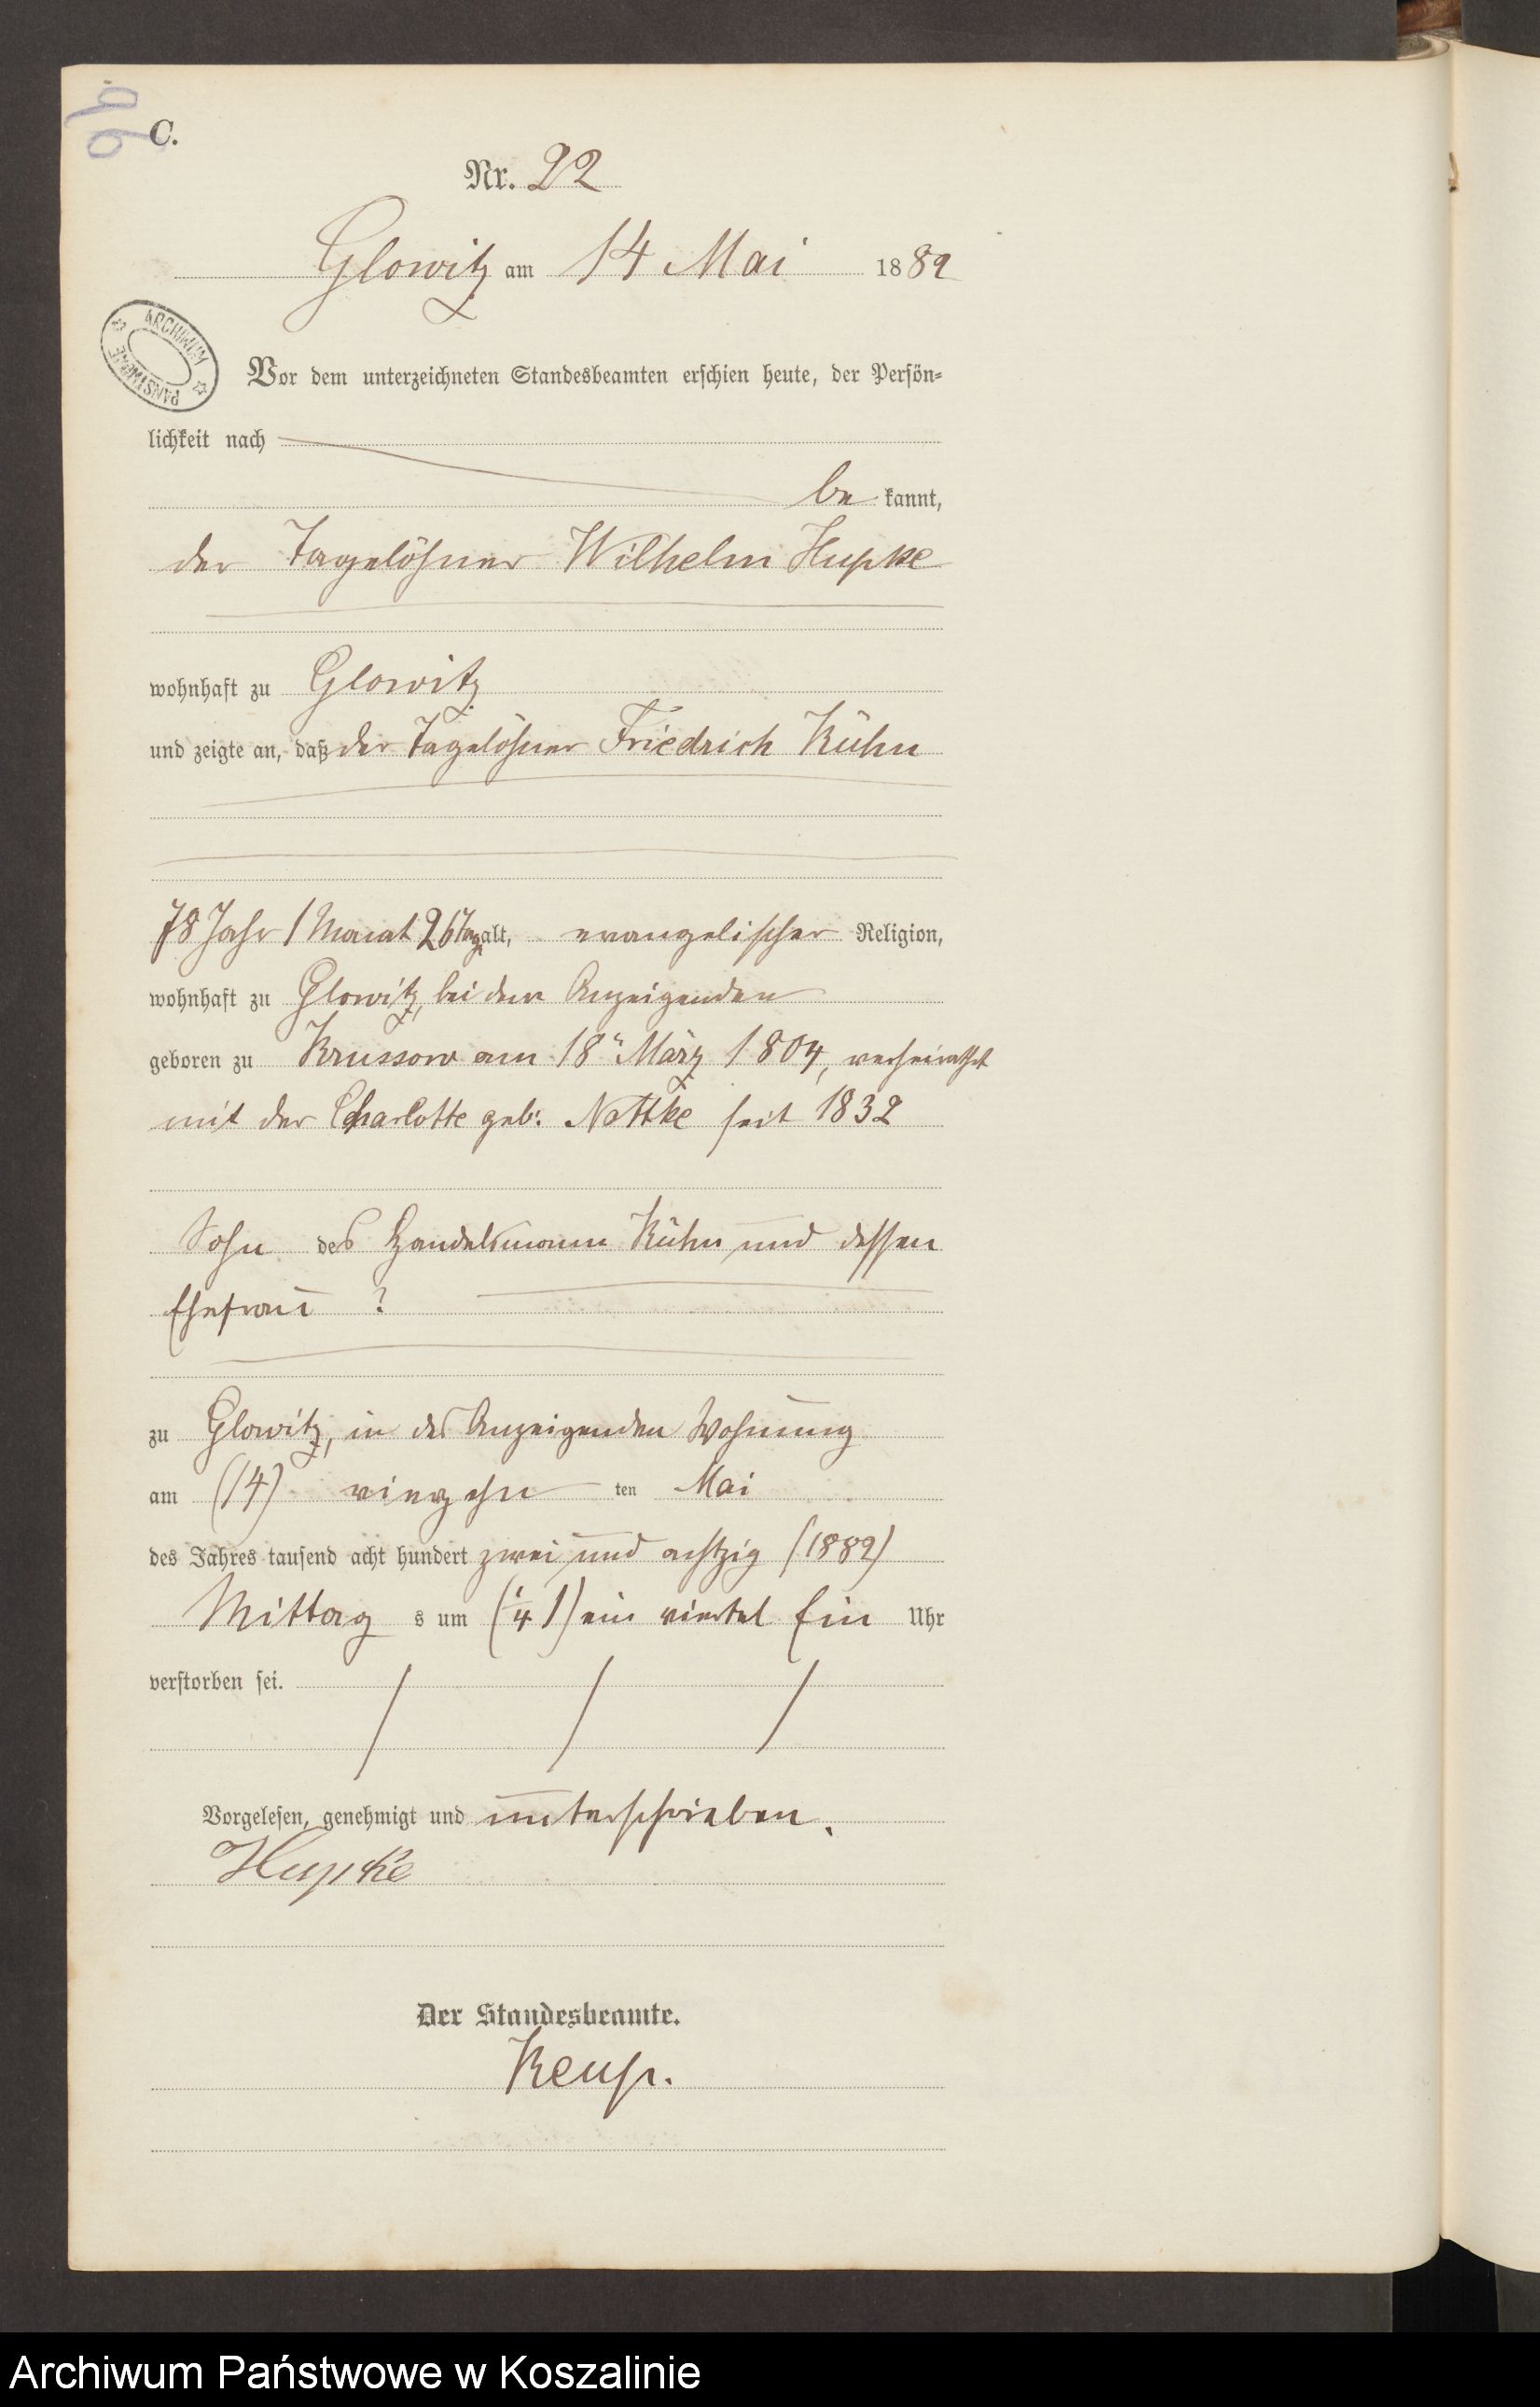 96
C.
Nr. 22
Glowitz am 14 Mai 1882
ARCHIWUM PAŃSTWOWE
Vor dem unterzeichneten Standesbeamten erschien heute, der Persön-
lichkeit nach
be kannt,
der Tagelöhner Wilhelm Hupke
wohnhaft zu Glowitz
und zeigte an, daß der Tagelöhner Friedrich Kühn
78 Jahr 1 Monat 26 Tage alt, evangelischer Religion,
wohnhaft zu Glowitz, bei dem Anzeigenden
geboren zu Krussow am 18" März 1804, verheirathet
mit der Charlotte geb: Nottke seit 1832
Sohn des Handelsmann Kühn und dessen
Ehefrau ?
zu Glowitz, in des Anzeigenden Wohnung
am (14) vierzehn ten Mai
des Jahres tausend acht hundert zwei und achtzig (1882)
Mittag s um (¼ 1) ein viertel Ein Uhr
verstorben sei.
Vorgelesen, genehmigt und unterschrieben.
Hupke
Der Standesbeamte.
Archiwum Państwowe w Koszalinie